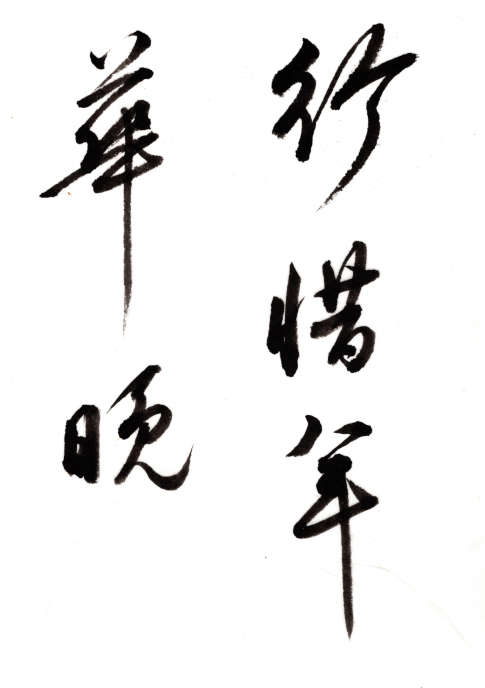 行惜年
華晚